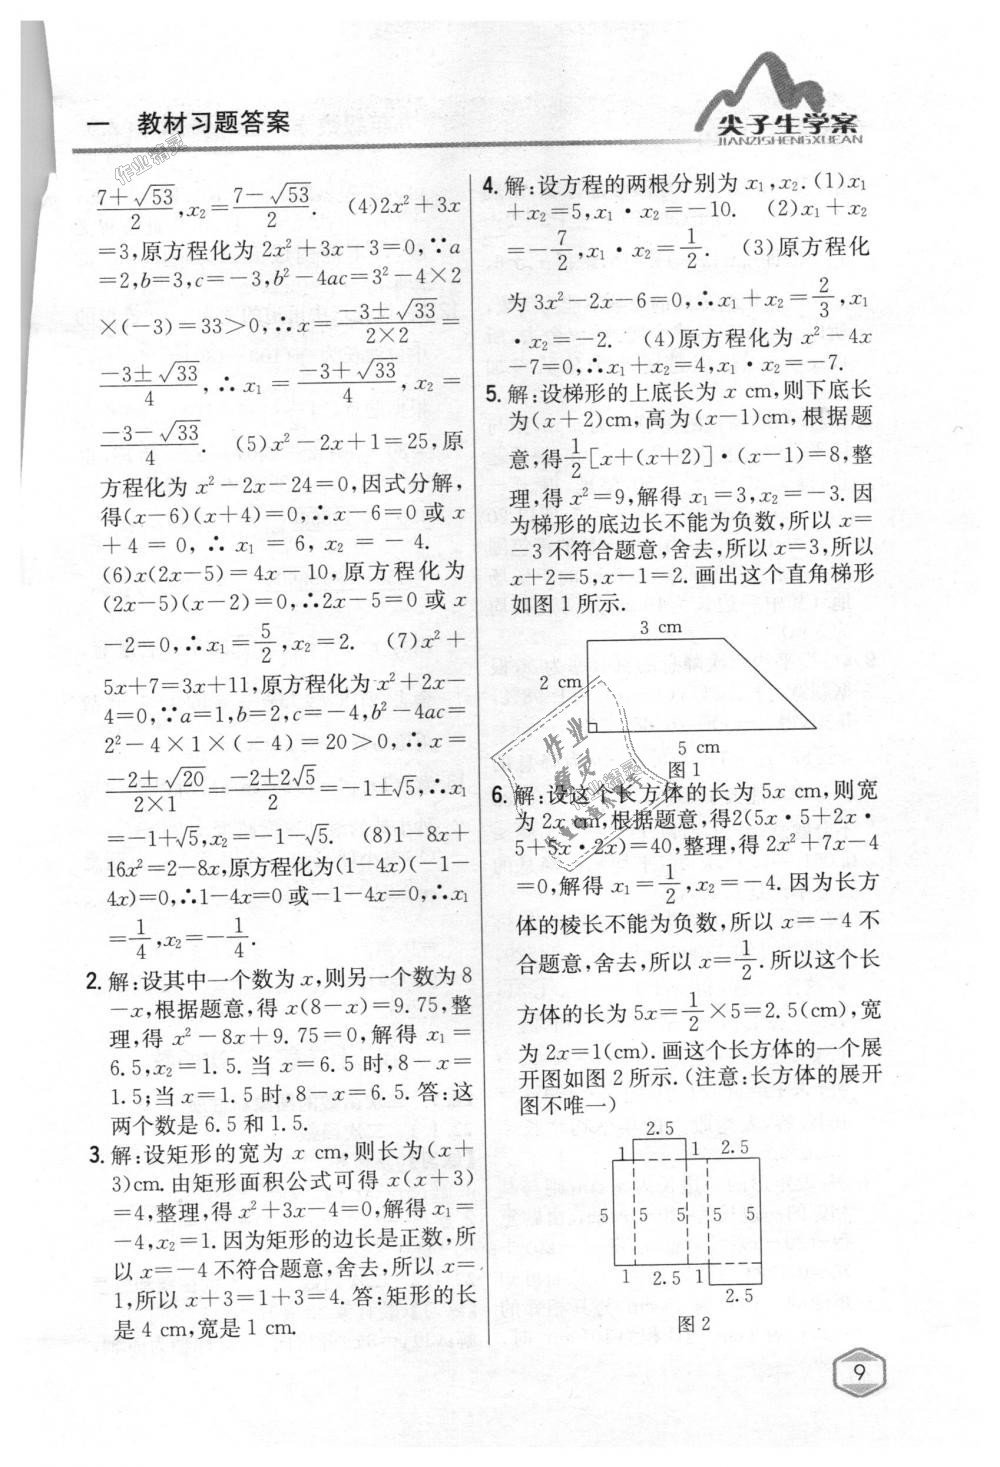 一 教材习题答案
尖子生学案
JIANZISHENGXUEAN
作业精灵
(7+√53)/2,x₂=(7-√53)/2. (4)2x²+3x
=3,原方程化为 2x²+3x-3=0,∵a
=2,b=3,c=-3,b²-4ac=3²-4×2
×(-3)=33>0,∴x=(-3±√33)/(2×2)=
(-3±√33)/4,∴x₁=(-3+√33)/4,x₂=
(-3-√33)/4. (5)x²-2x+1=25,原
方程化为 x²-2x-24=0,因式分解,
得(x-6)(x+4)=0,∴x-6=0 或 x
+4=0,∴x₁=6,x₂=-4.
(6)x(2x-5)=4x-10,原方程化为
(2x-5)(x-2)=0,∴2x-5=0 或 x
-2=0,∴x₁=5/2,x₂=2. (7)x²+
5x+7=3x+11,原方程化为 x²+2x-
4=0,∵a=1,b=2,c=-4,b²-4ac=
2²-4×1×(-4)=20>0,∴x=
(-2±√20)/(2×1)=(-2±2√5)/2=-1±√5,∴x₁
=-1+√5,x₂=-1-√5. (8)1-8x+
16x²=2-8x,原方程化为(1-4x)(-1-
4x)=0,∴1-4x=0 或-1-4x=0,∴x₁
=1/4,x₂=-1/4.
2. 解:设其中一个数为 x,则另一个数为 8
-x,根据题意,得 x(8-x)=9.75,整
理,得 x²-8x+9.75=0,解得 x₁=
6.5,x₂=1.5. 当 x=6.5 时,8-x=
1.5;当 x=1.5 时,8-x=6.5. 答:这
两个数是 6.5 和 1.5.
3. 解:设矩形的宽为 x cm,则长为(x+
3)cm. 由矩形面积公式可得 x(x+3)
=4,整理,得 x²+3x-4=0,解得 x₁=
-4,x₂=1. 因为矩形的边长是正数,所
以 x=-4 不符合题意,舍去,所以 x=
1,所以 x+3=1+3=4. 答:矩形的长
是 4 cm,宽是 1 cm.
4. 解:设方程的两根分别为 x₁,x₂. (1)x₁
+x₂=5,x₁·x₂=-10. (2)x₁+x₂
=-7/2,x₁·x₂=1/2. (3)原方程化
为 3x²-2x-6=0,∴x₁+x₂=2/3,x₁
·x₂=-2. (4)原方程化为 x²-4x
-7=0,∴x₁+x₂=4,x₁·x₂=-7.
5. 解:设梯形的上底长为 x cm,则下底长
为(x+2)cm,高为(x-1)cm,根据题
意,得1/2[x+(x+2)]·(x-1)=8,整
理,得 x²=9,解得 x₁=3,x₂=-3. 因
为梯形的底边长不能为负数,所以 x=
-3 不符合题意,舍去,所以 x=3,所以
x+2=5,x-1=2. 画出这个直角梯形
如图 1 所示.
3 cm
2 cm
5 cm
图 1
作业精灵
6. 解:设这个长方体的长为 5x cm,则宽
为 2x cm,根据题意,得2(5x·5+2x·
5+5x·2x)=40,整理,得 2x²+7x-4
=0,解得 x₁=1/2,x₂=-4. 因为长方
体的棱长不能为负数,所以 x=-4 不
合题意,舍去,所以 x=1/2.所以这个长
方体的长为 5x=1/2×5=2.5(cm),宽
为 2x=1(cm). 画这个长方体的一个展
开图如图 2 所示.(注意:长方体的展开
图不唯一)
2.5
1 1 2.5
5 5 5 5 5
1 2.5 1
2.5
图 2
9